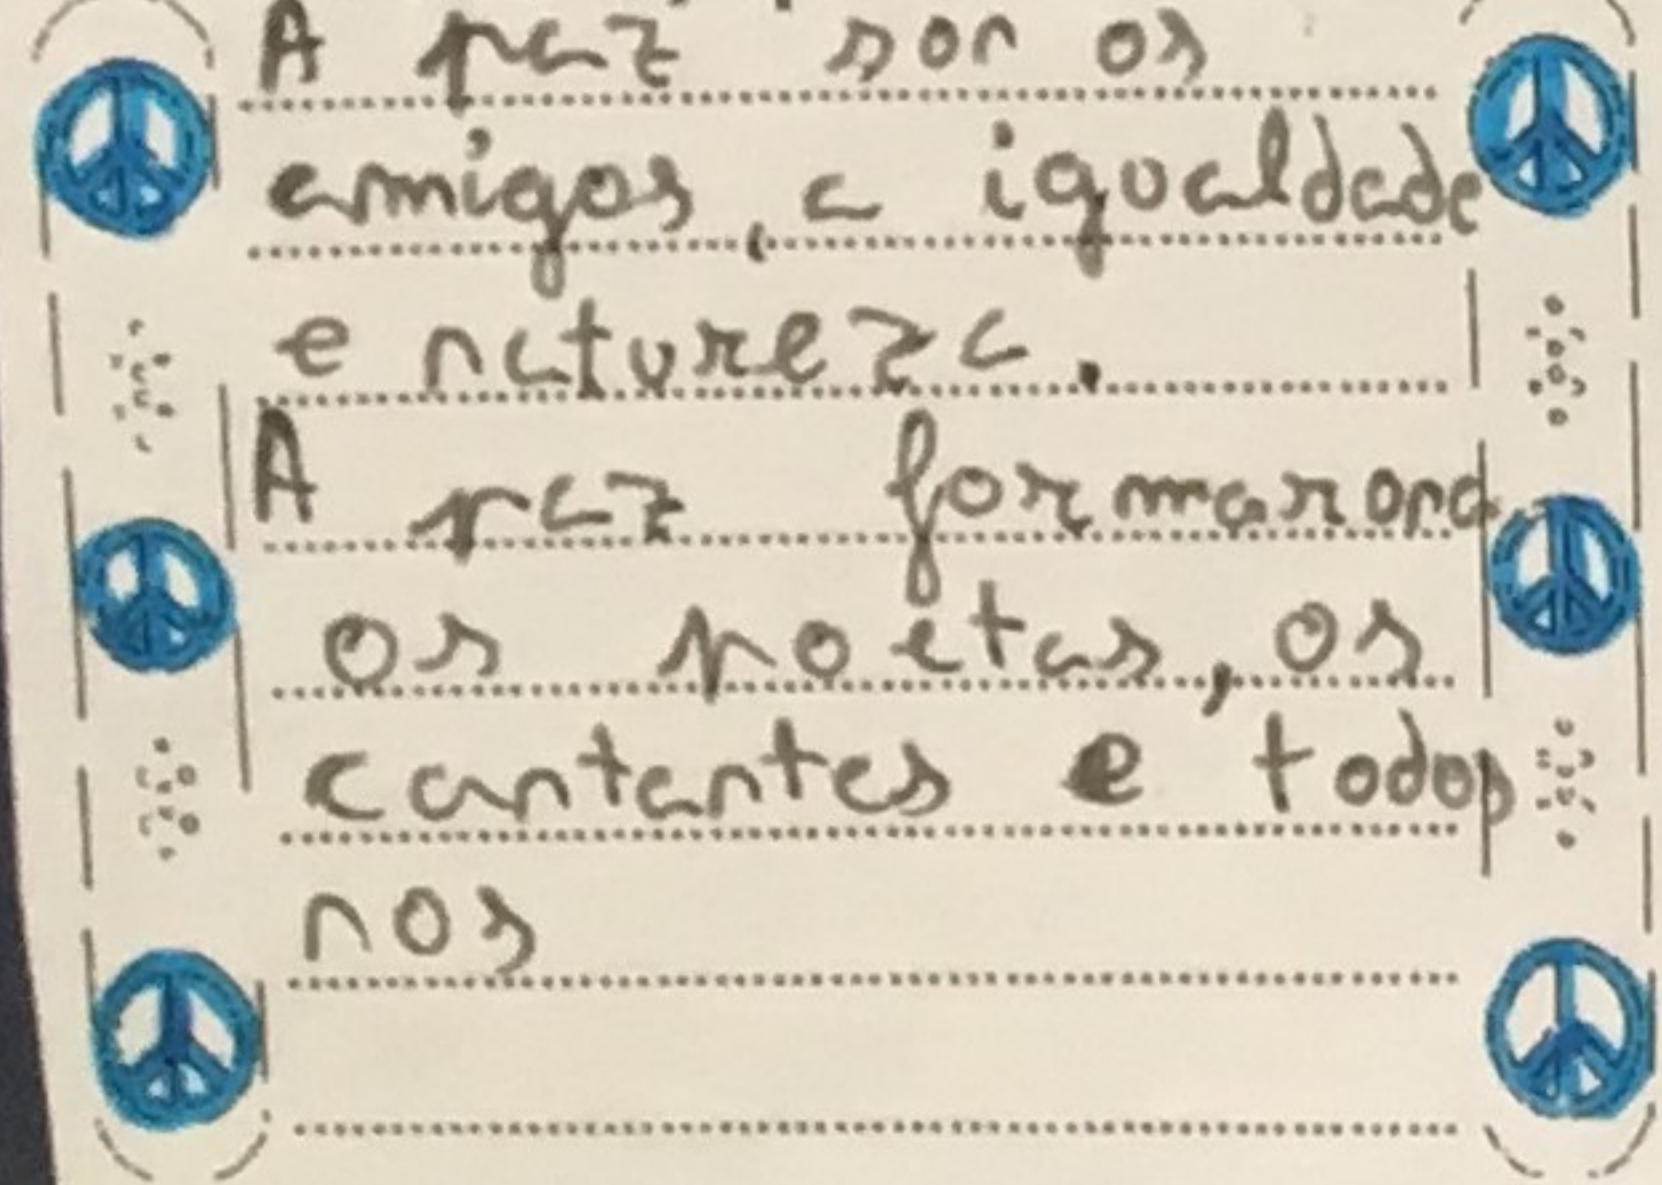 A paz son os
amigos, a igualdade
e natureza.
A paz formarona
os poetas, os
cantantes e todos
nos